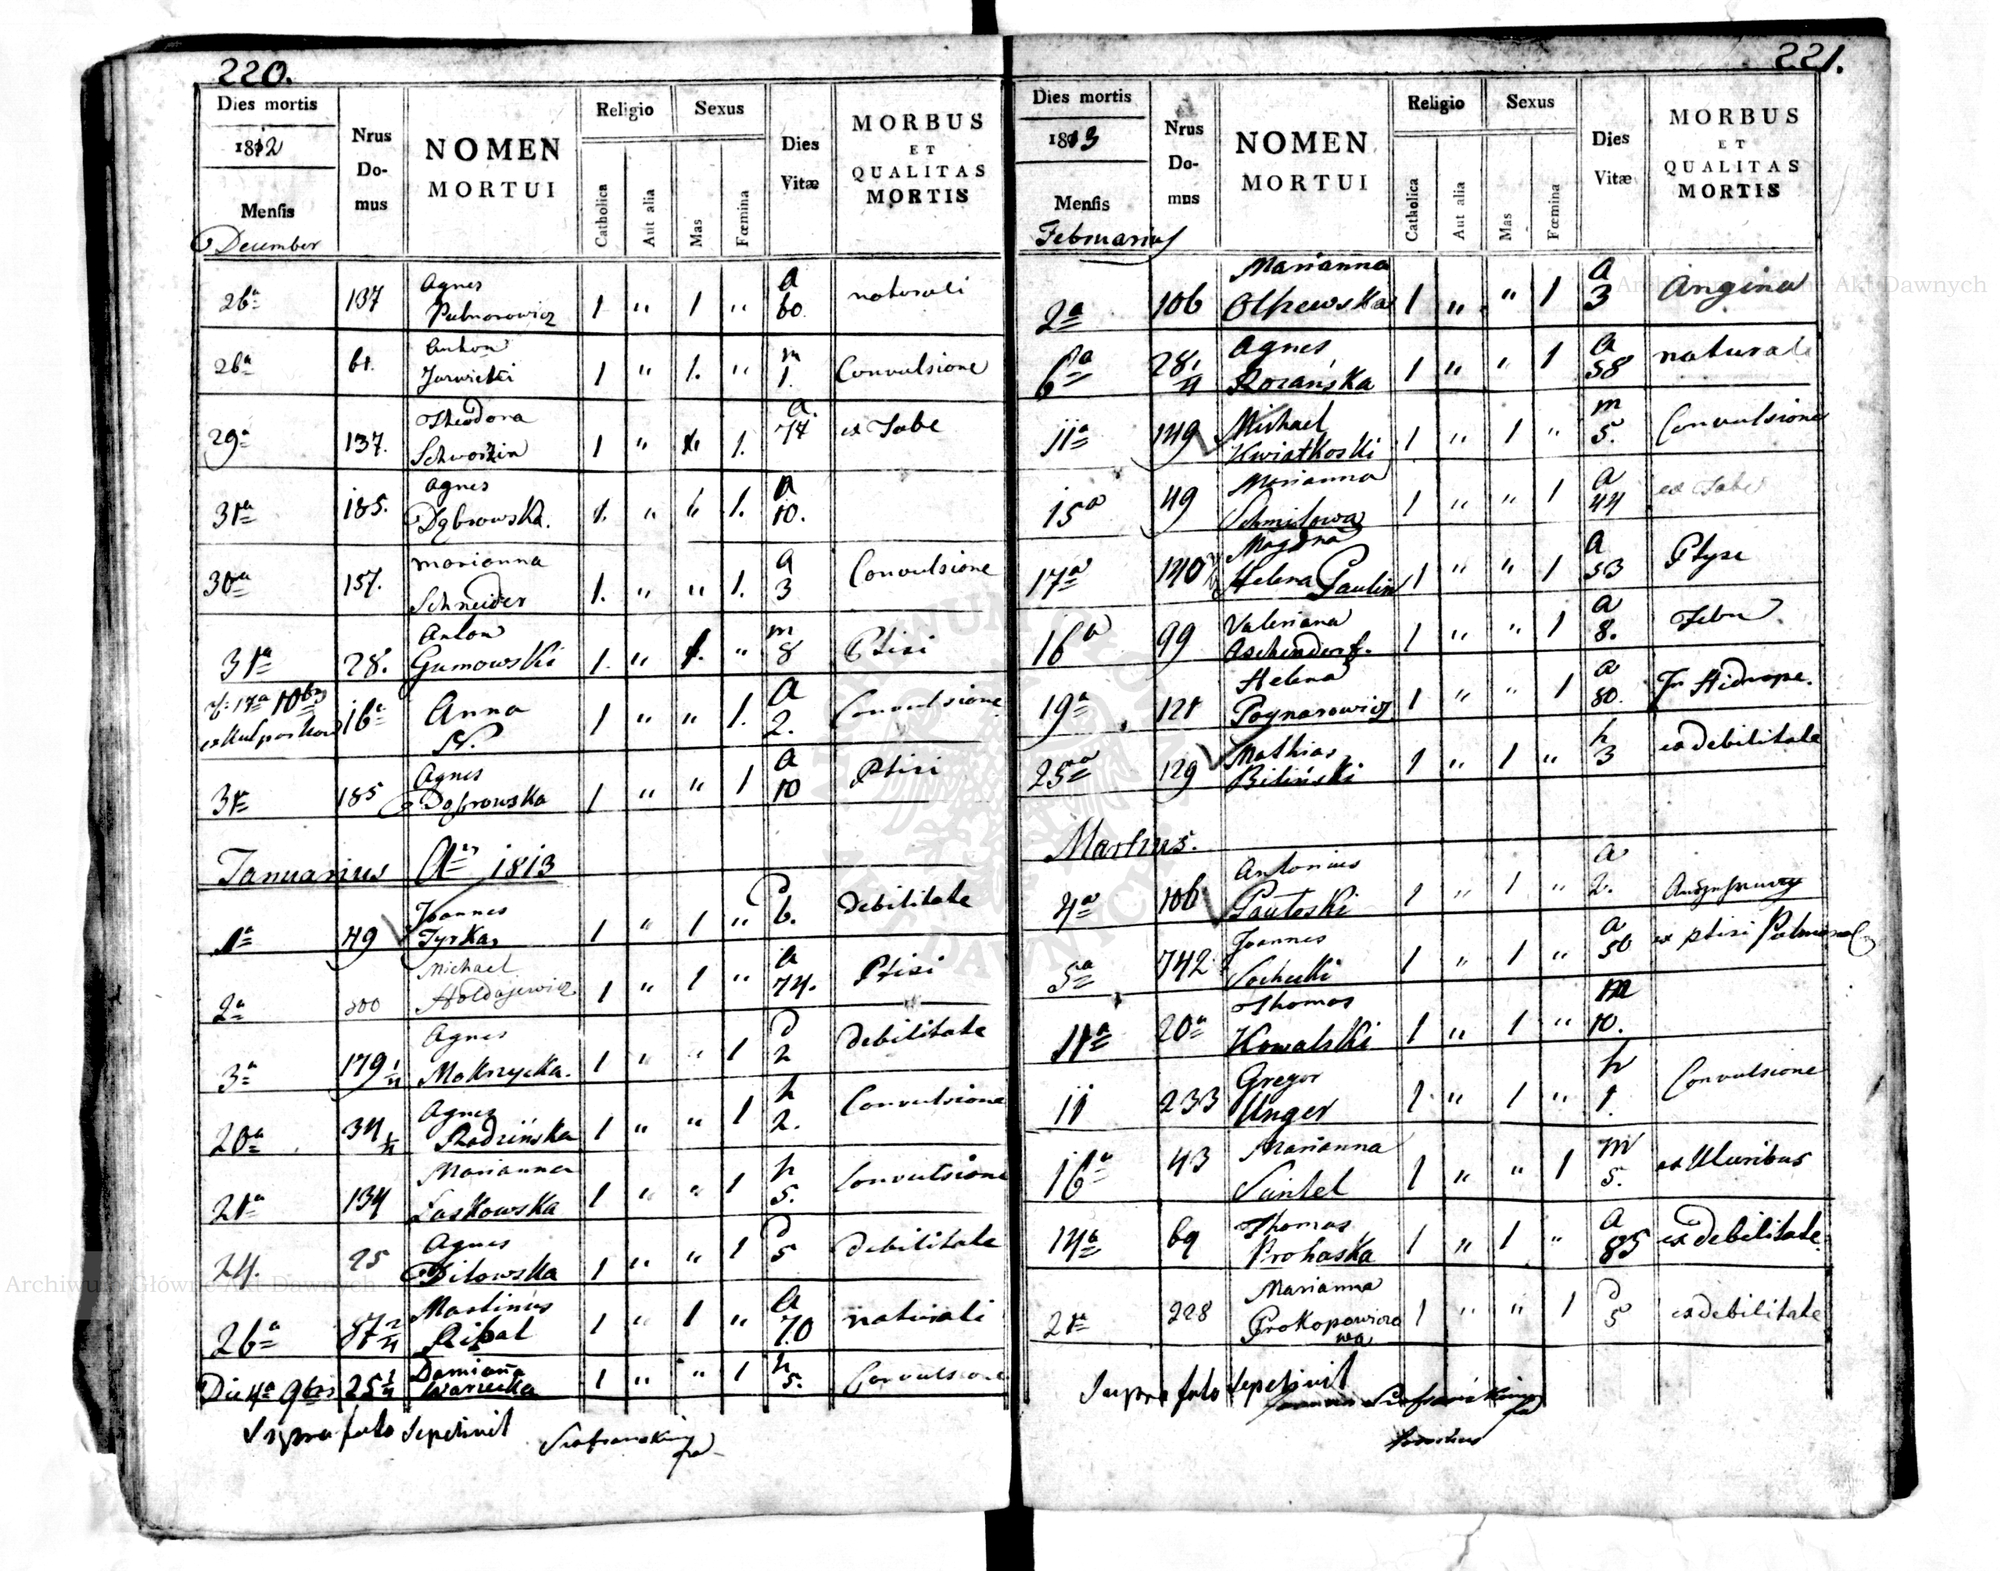 220.
Dies mortis
1812
Mensis
December
Nrus Domus
NOMEN MORTUI
Religio
Catholica
Aut alia
Sexus
Mas
Fœmina
Dies Vitæ
MORBUS ET QUALITAS MORTIS
26a 137 Agnes 1 " 1 " a 60 naturali
26a 61. Anton 1 " 1. " m 1. Convulsione
29a 137. Theodora 1 " 1. a. 74 ex Tabe
31a 185. Agnes Dąbrowska. 1. " 1. a 10.
30a 157. Marianna Schneider 1. " " 1. a 3 Convulsione
31a 28. Anton Gumowski 1. " 1. " m 8 Ptisi
17a 10bris 16a Anna N. 1 " " 1. a 2. Convulsione
31a 185 Agnes Dąbrowska 1 " " 1 a 10 Ptisi
Januarius Ao 1813
1a 49 Joannes Tyrka 1 " 1 " d 6. debilitate
2a 200 Michael 1 " 1 " a 74. Ptisi
3a 179 1/4 Agnes Mokrzycka. 1 " " 1 d 2 debilitate
20a 34 Agnes Radzińska 1 " " 1 h 2. Convulsione
21a 134 Marianna Laskowska 1 " " 1 h 5. Convulsione
24. 25 Agnes Bilowska 1 " " 1 d 5 debilitate
26a 87 2/4 Martinus 1 " 1 " a 70 naturali
Die 4a 9bris 25 1/4 Damiana Warecka 1 " " 1 h 5. Convulsione
Supra fato sepelivit
221.
Dies mortis
1813
Mensis
Februarius
Nrus Domus
NOMEN MORTUI
Religio
Catholica
Aut alia
Sexus
Mas
Fœmina
Dies Vitæ
MORBUS ET QUALITAS MORTIS
2a 106 Marianna Olszewska 1 " " 1 a 3 Angina
6a 28 1/4 Agnes Rozańska 1 " " 1 a 58 naturali
11a 149 Michael Kwiatkoski 1 " 1 " m 5. Convulsione
15a 49 Marianna Schmitowa 1 " " 1 a 44 ex Tabe
17a 140 Helena Paulin 1 " " 1 a 53 Ptyse
16a 99 Valeriana Aschendorf. 1 " " 1 a 8. Febri
19a 121 Helena Poznarowicz 1 " " 1 a 80. Hidrope.
25a 129 Mathias Biliński 1 " 1 " h 3 ex debilitate
Martius.
4a 106 Antonius Pautoski 1 " 1 " a 2.
5a 742 Joannes Sochecki 1 " 1 " a 50 ex ptisi Pulmonal
11a 20a Thomas Kowalski 1 " 1 " m 10.
11 233 Gregor Unger 1 " 1 " h 1. Convulsione
16a 43 Marianna 1 " " 1 m 5.
14a 69 Thomas Prohaska 1 " 1 " a 85 ex debilitate
21a 228 Marianna Prokopowiczowa 1 " " 1 d 5 ex debilitate
Supra fato sepelivit
Archiwum Główne Akt Dawnych
ARCHIWUM GŁÓWNE AKT DAWNYCH